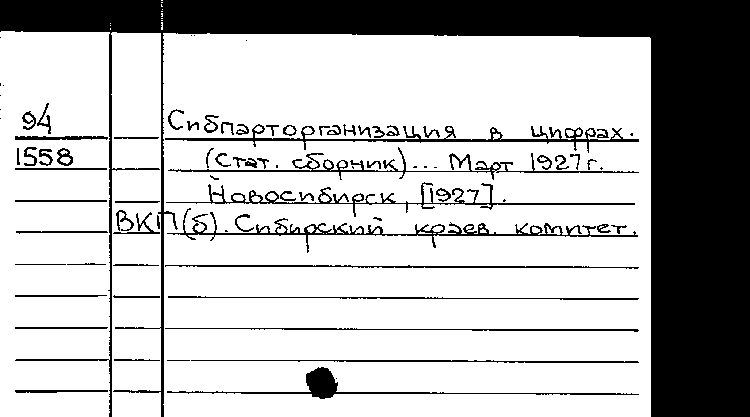 94 Сибпарторганизация в цифрах.
1558 (Стат. сборник)... Март 1927 г.
Новосибирск, [1927].
ВКП(б). Сибирский краев. комитет.